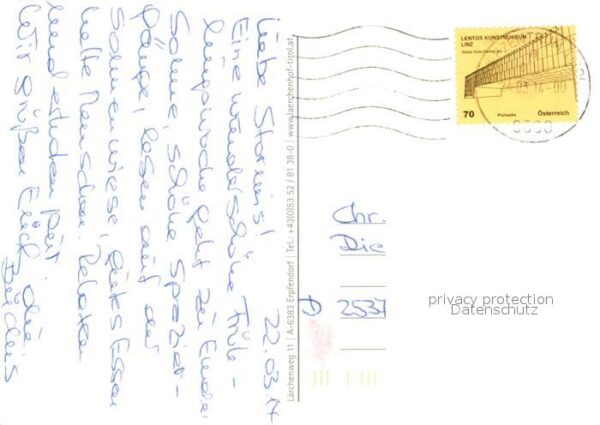 22.03.14
Liebe Stormis!
Eine wunderschöne Früh-
lingswoche geht zu Ende.
Sonne, schöne Spazier-
gänge, lesen auf der
Sonnenwiese, gutes Essen
nette Menschen. Relaxen
und
Wir grüßen Euch
Lärchenweg 11 | A-6383 Erpfendorf | Tel.: +43(0)53 52 / 81 38-0 | www.laerchenhof-tirol.at
LENTOS KUNSTMUSEUM
LINZ
70 Österreich
Chr.
Die
2537
privacy protection
Datenschutz